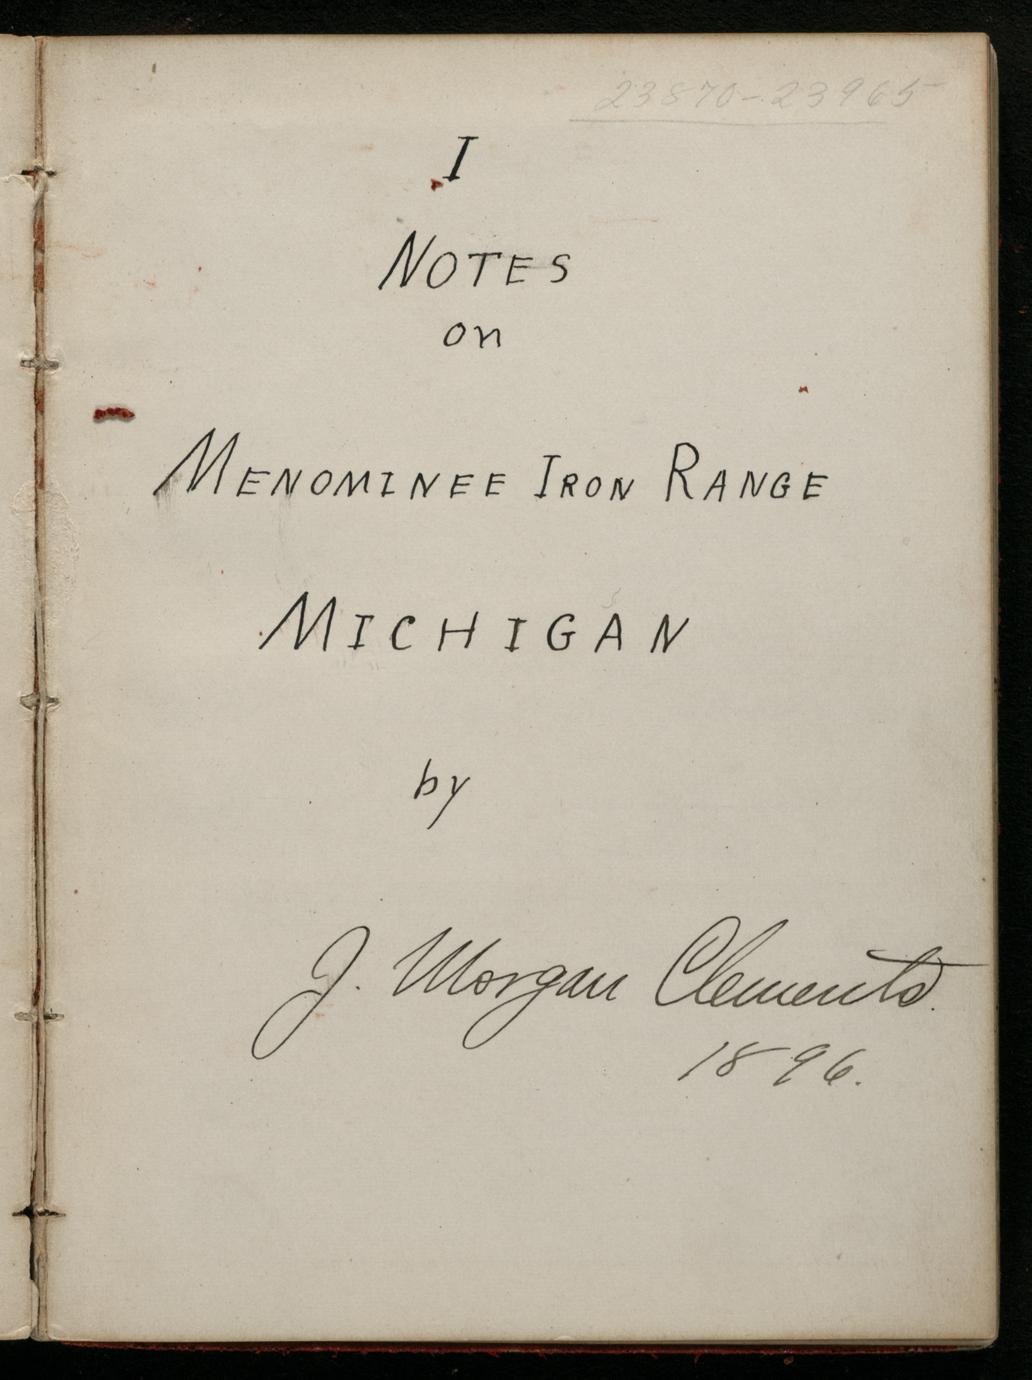 23870-23965
I
NOTES
on
MENOMINEE IRON RANGE
MICHIGAN
by
J. Morgan Clements.
1896.